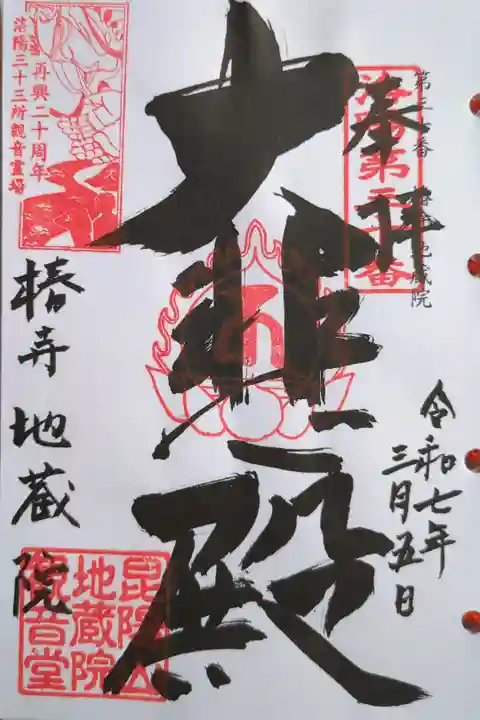 奉拝
洛陽第三十番
地蔵院
令和七年
三月五日
大悲殿
再興二十周年
洛陽三十三所観音霊場
椿寺地蔵院
昆陽山
地蔵院
観音堂